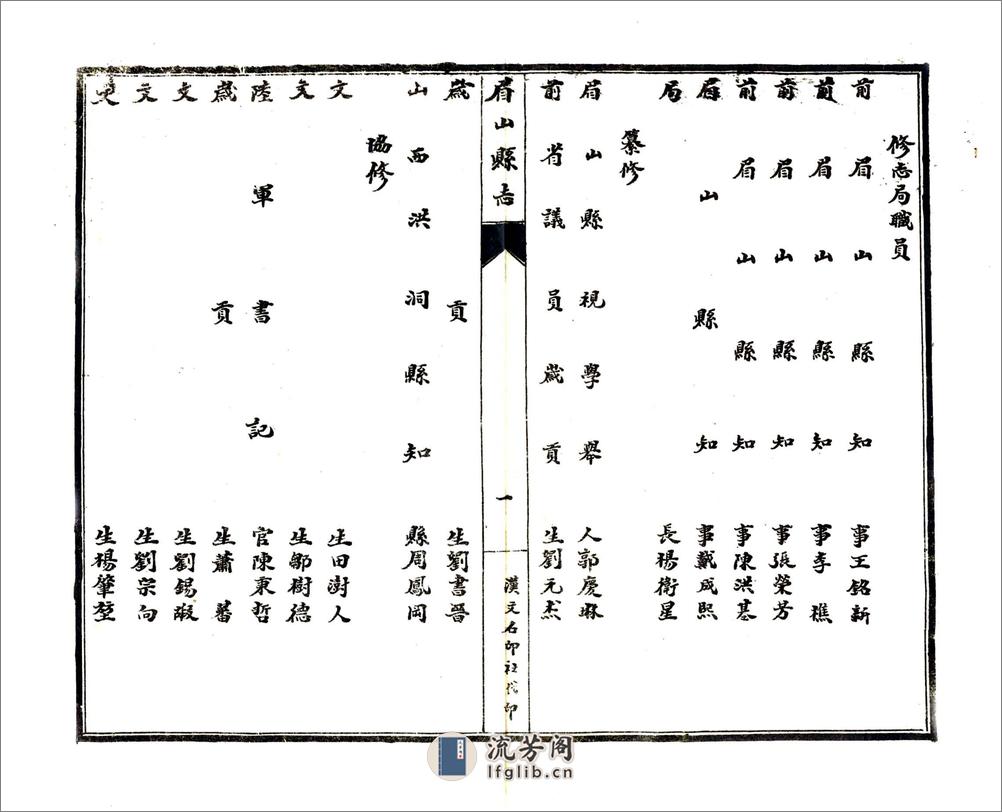 修志局職員
前眉山縣知事王銘新
前眉山縣知事李樵
前眉山縣知事張榮芳
前眉山縣知事陳洪基
眉山縣知事戴成熙
局長楊衛星
纂修
眉山縣視學舉人郭慶琳
前省議員歲貢生劉元杰
眉山縣志
一
漢文石印社代印
歲貢生劉書晉
山西洪洞縣知縣周鳳岡
協修
文生田澍人
文生鄒樹德
陸軍書記官陳東哲
歲貢生蕭蕃
文生劉錫嘏
文生劉宗向
文生楊肇堃
流芳阁
lfglib.cn